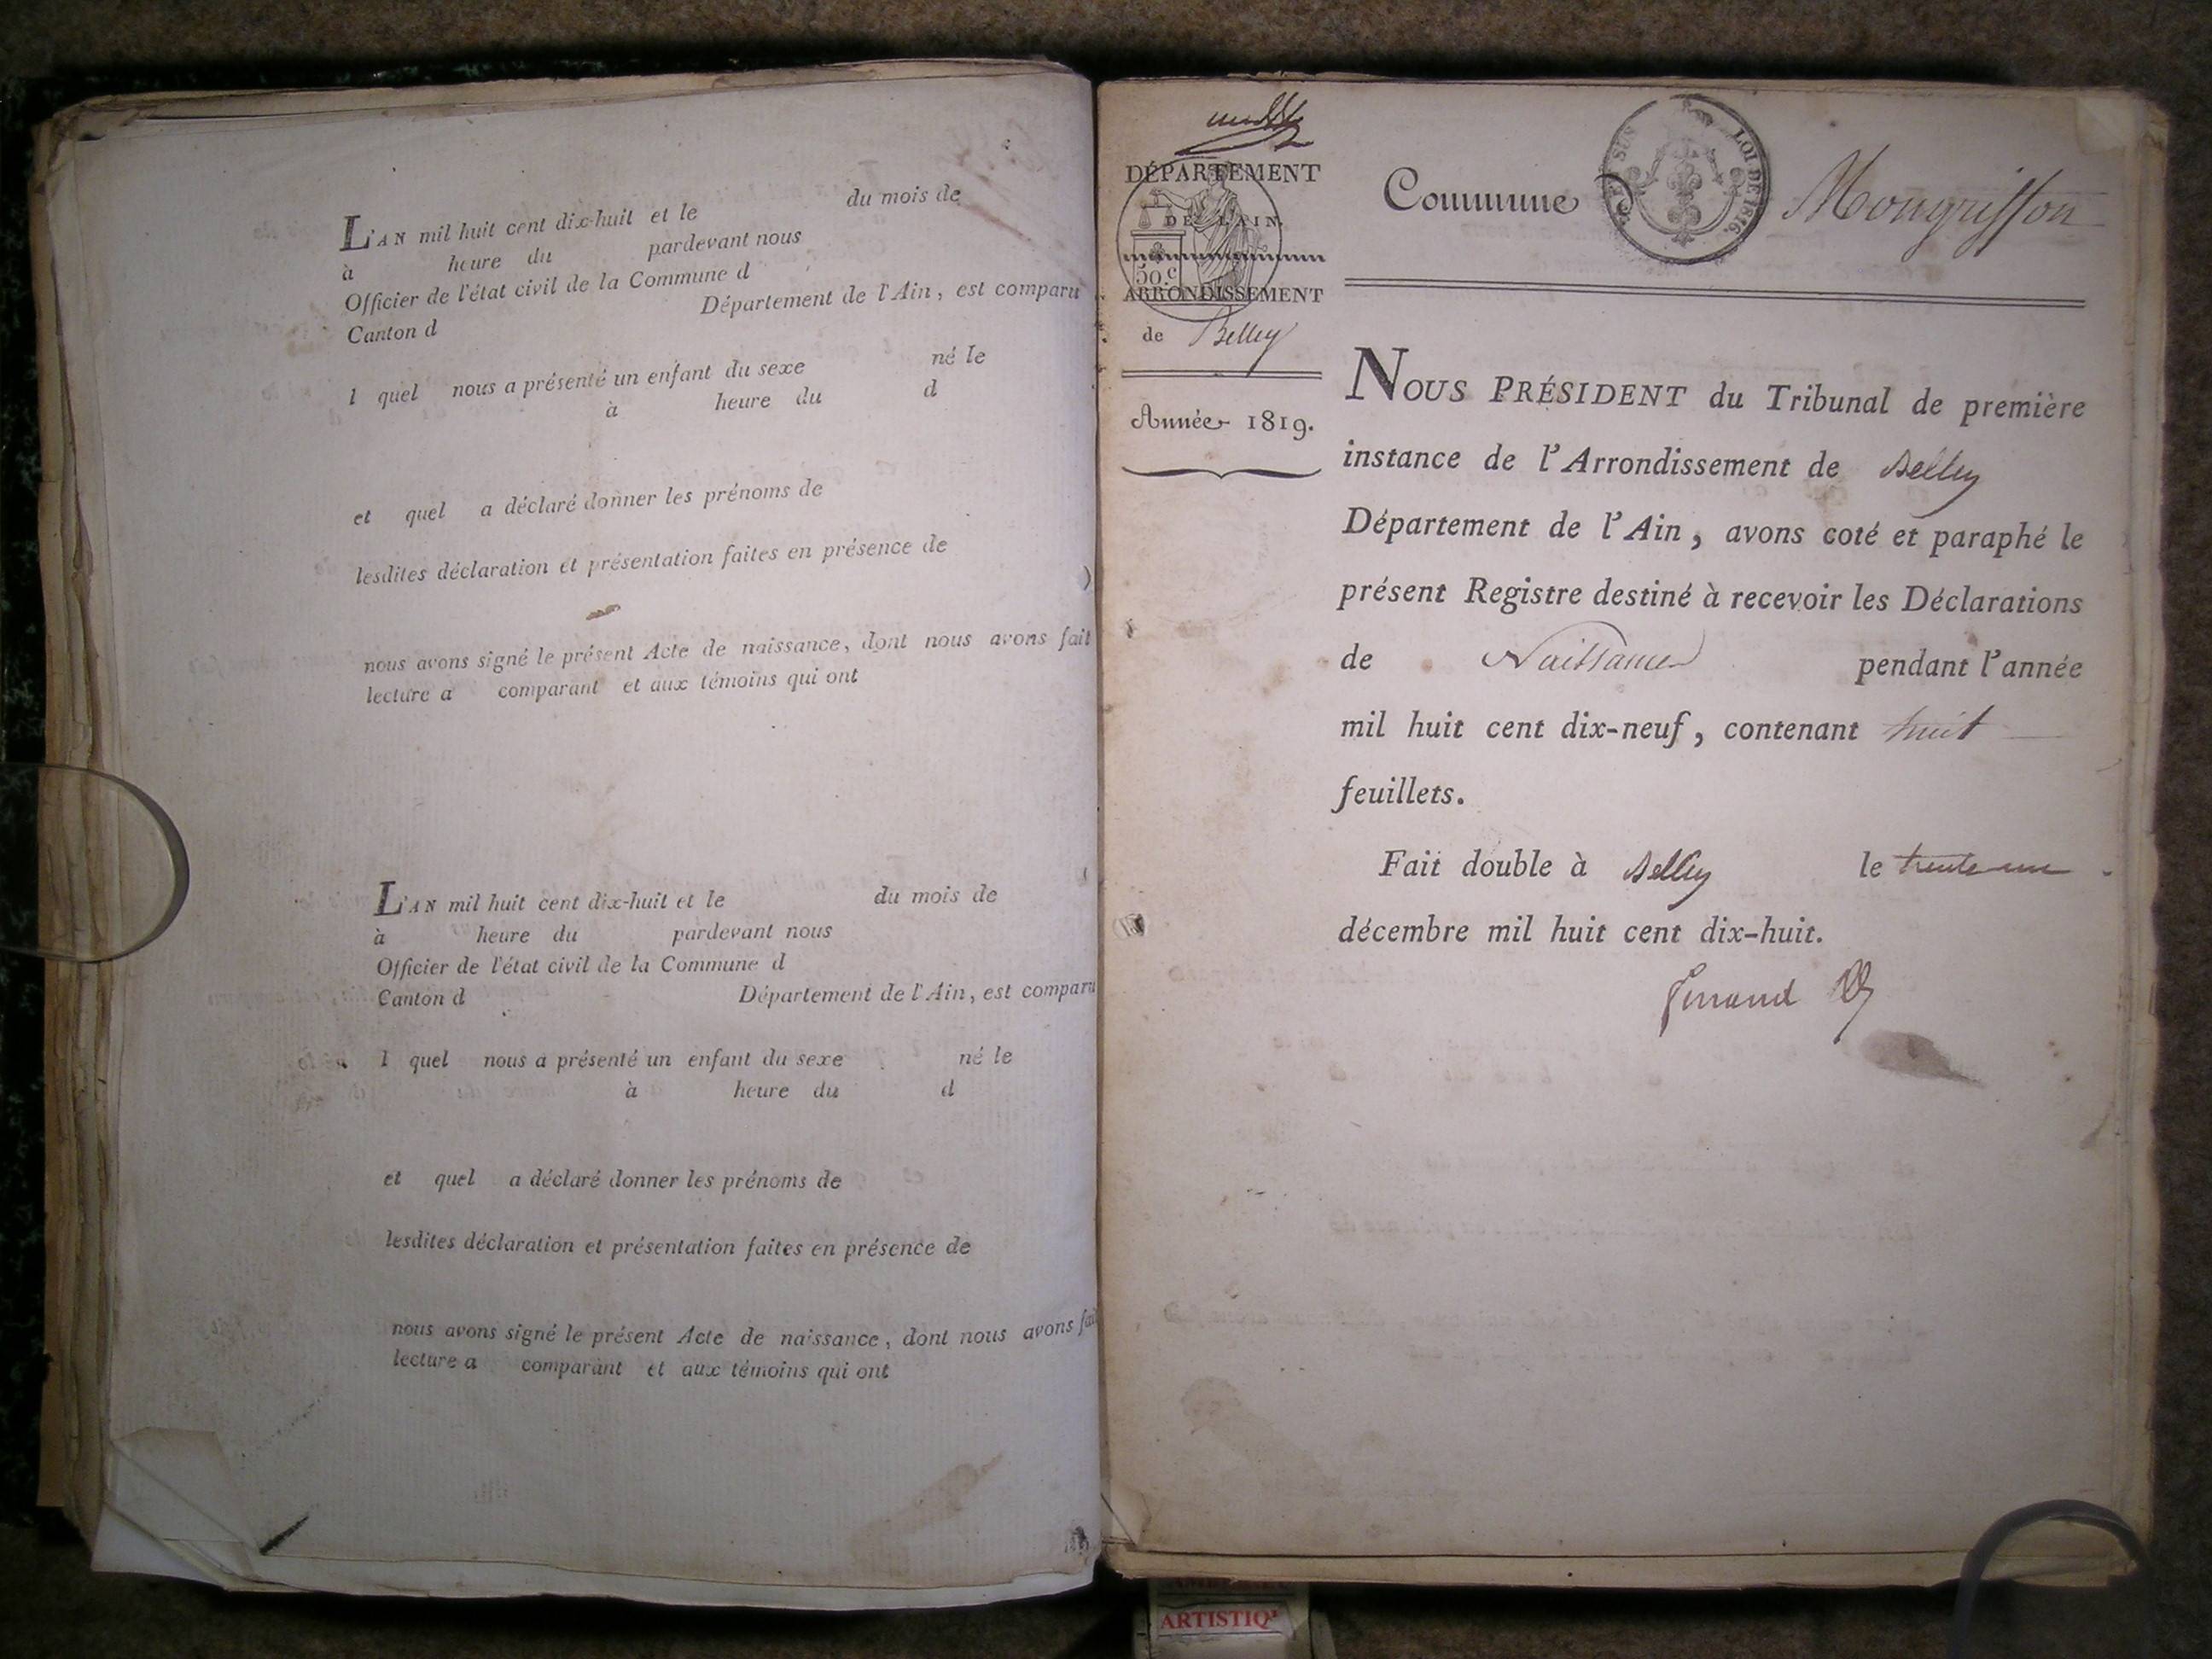 L'AN mil huit cent dix-huit et le du mois de
à heure du pardevant nous
Officier de l'état civil de la Commune d
Canton d Département de l'Ain, est comparu
l quel nous a présenté un enfant du sexe né le
à heure du d
et quel a déclaré donner les prénoms de
lesdites déclaration et présentation faites en présence de
nous avons signé le présent Acte de naissance, dont nous avons fait
lecture a comparant et aux témoins qui ont
L'AN mil huit cent dix-huit et le du mois de
à heure du pardevant nous
Officier de l'état civil de la Commune d
Canton d Département de l'Ain, est comparu
l quel nous a présenté un enfant du sexe né le
à heure du d
et quel a déclaré donner les prénoms de
lesdites déclaration et présentation faites en présence de
nous avons signé le présent Acte de naissance, dont nous avons fai
lecture a comparant et aux témoins qui ont
DÉPARTEMENT
DE L'AIN.
50.c
ARRONDISSEMENT
de Belley
Année 1819.
Commune d Mongrisson
LOI DE 1816.
NOUS PRÉSIDENT du Tribunal de première
instance de l'Arrondissement de Belley
Département de l'Ain, avons coté et paraphé le
présent Registre destiné à recevoir les Déclarations
de Naissances pendant l'année
mil huit cent dix-neuf, contenant huit
feuillets.
Fait double à Belley le trente un
décembre mil huit cent dix-huit.
ARTISTIQ